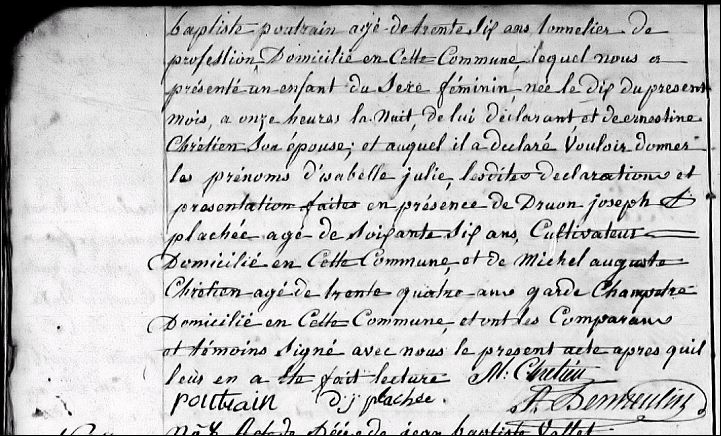 baptiste poutrain agé de trente six ans tonnelier de
profession, Domicilié en Cette Commune, lequel nous a
présenté un enfant du Sexe féminin, née le dix du present
mois, a onze heures la nuit, de lui déclarant et de ernestine
Chrétien Son épouse; et auquel il a declaré Vouloir donner
les prénoms d'isabelle julie, lesdites declarations et
presentation faites en présence de Druon joseph
plachée agé de Soixante Six ans, Cultivateur
Domicilié en Cette Commune, et de Michel auguste
Chrétien agé de trente quatre ans garde Champetre
Domicilié en Cette Commune, et ont les Comparans
et témoins Signé avec nous le present acte apres qu'il
leus en a eté fait lecture M. Chrétien
poutrain D. j. plachée.
N° 8 Acte de Décès de jean baptiste Vallet